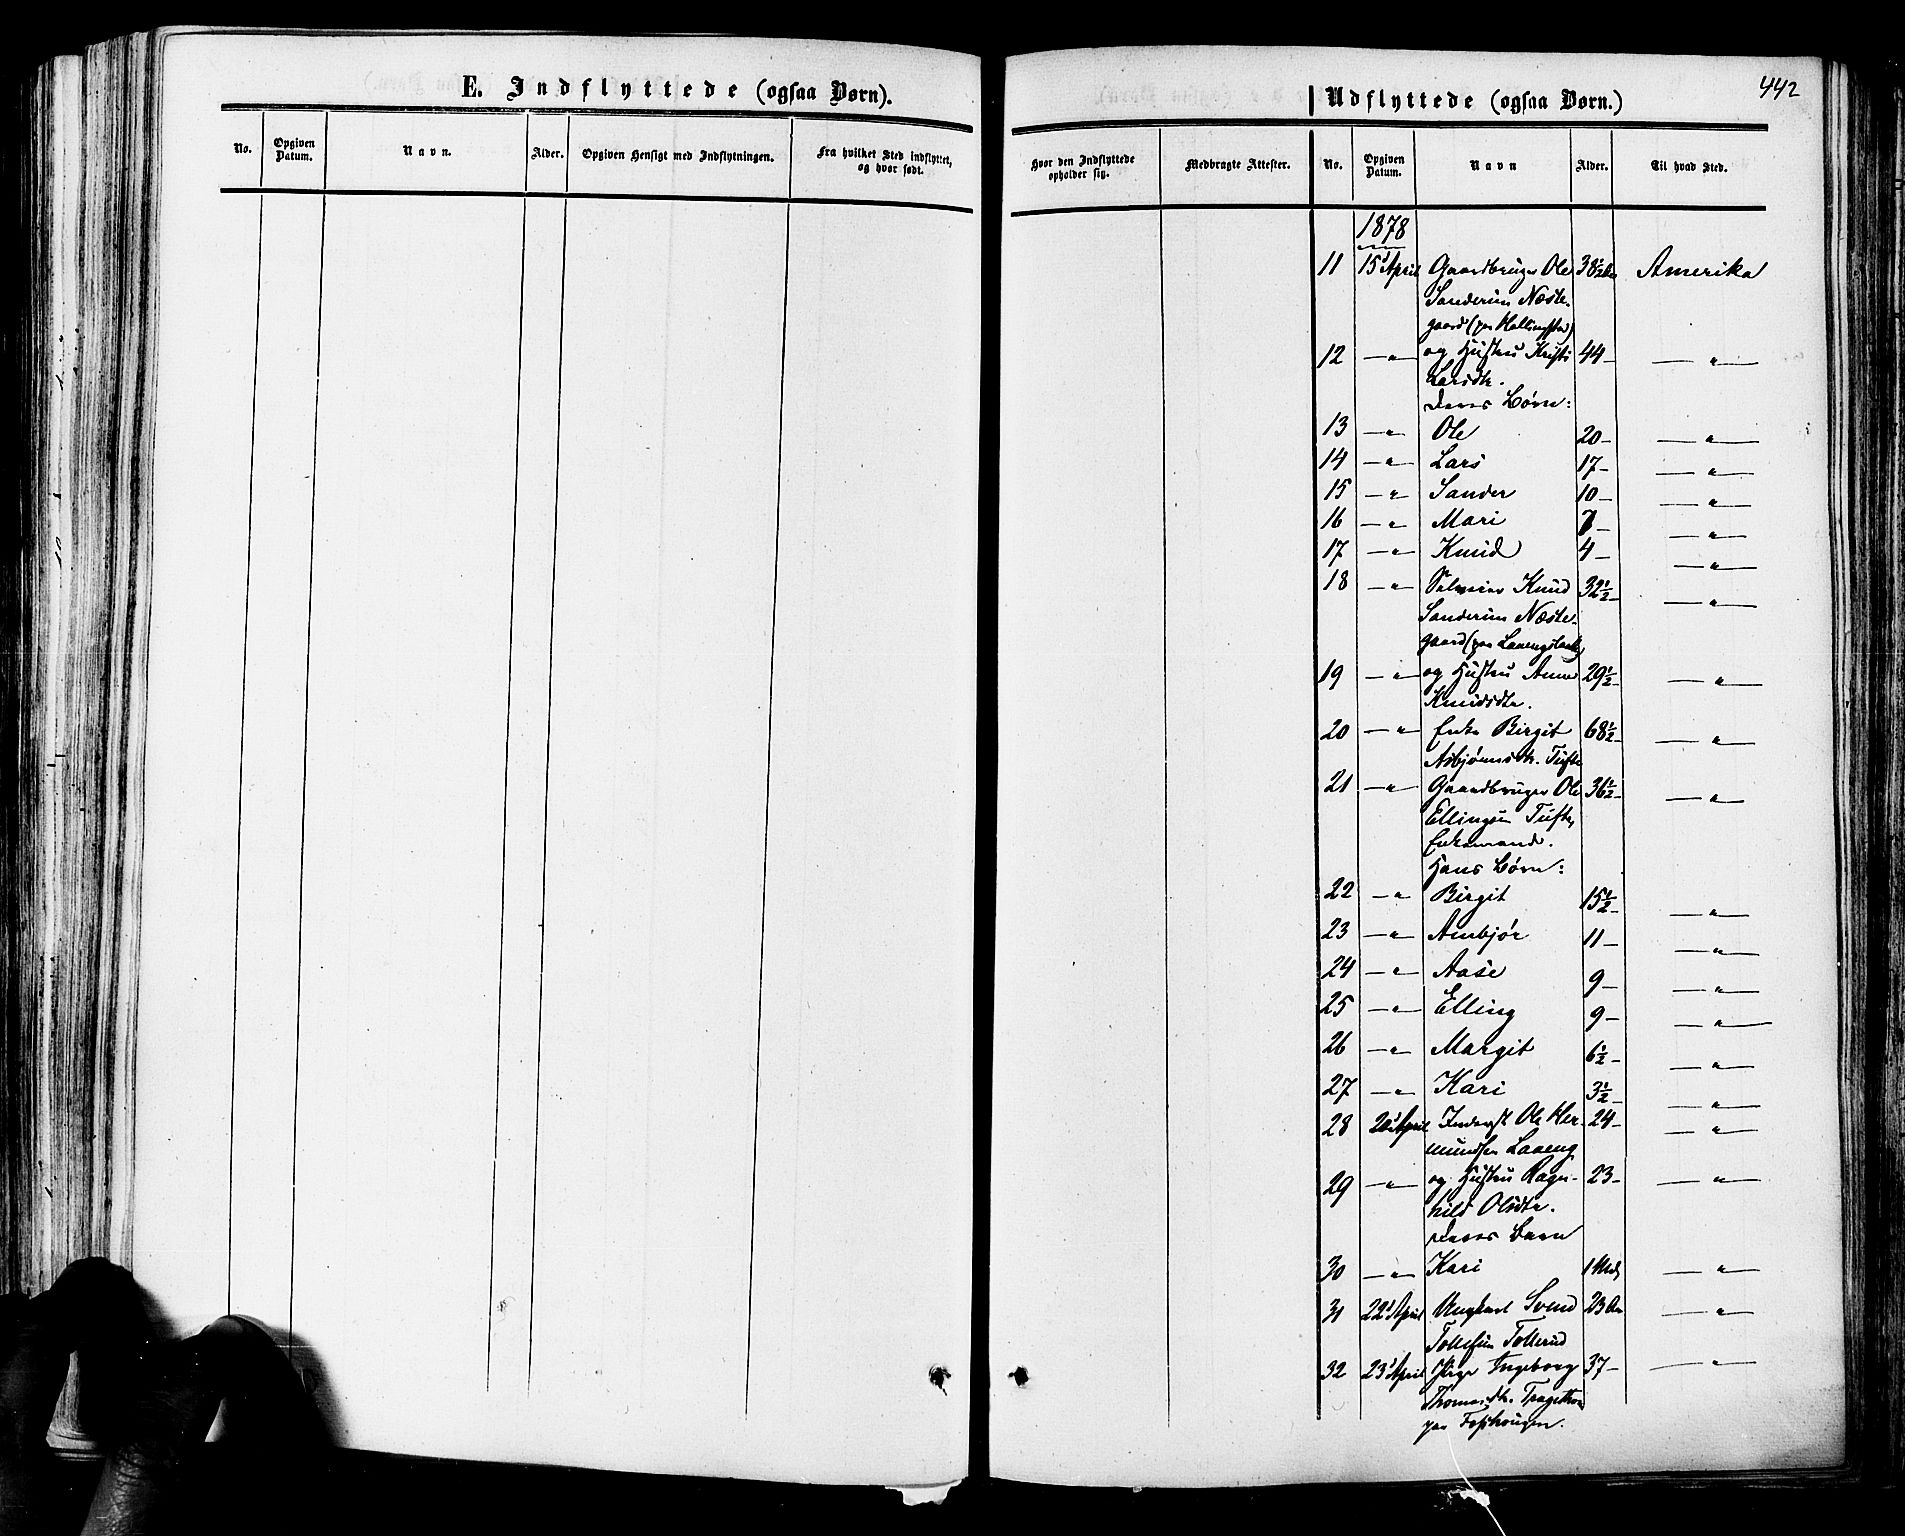 442
E. Indflyttede (ogsaa Børn).
Udflyttede (ogsaa Børn.)
No. Opgiven Datum. Navn. Alder. Opgiven Hensigt med Indflytningen. Fra hvilket Sted indflyttet, og hvor født.
Hvor den Indflyttede opholder sig. Medbragte Attester. No. Opgiven Datum. Navn Alder. Til hvad Sted.
1878
11 15 April Gaardbruger Ole 38½ Amerika
Sandersen Næste-
gaard (paa Hallingstad)
12 —"— og Hustru Kristi 44– —"—
Larsdtr.
Deres Børn:
13 —"— Ole 20– —"—
14 —"— Lars 17– —"—
15 —"— Sander 10– —"—
16 —"— Mari 7– —"—
17 —"— Knud 4– —"—
18 —"— Selveier Knud 32½– —"—
Sandersen Næste-
gaard (paa
19 —"— og Hustru Anne 29½– —"—
Knudsdtr.
20 —"— Enke Birgit 68½– —"—
Asbjørnsdtr. Tufte
21 —"— Gaardbruger Ole 36½– —"—
Ellingsen Tufte,
Enkemand.
Hans Børn:
22 —"— Birgit 15½– —"—
23 —"— Ambjør 11– —"—
24 —"— Aase 9– —"—
25 —"— Elling 9– —"—
26 —"— Margit 6½– —"—
27 —"— Kari 3½– —"—
28 20 April Inderst Ole Her- 24– —"—
mundsen Laaeng
29 —"— og Hustru Ragn- 23– —"—
hild Olsdtr.
Deres Barn
30 —"— Kari 1 —"—
31 22 April Ungkarl Svend 23 Aar —"—
Tollefsen Tollerud
32 23 April Pige Ingeborg 37– —"—
Thomasdtr.
paa